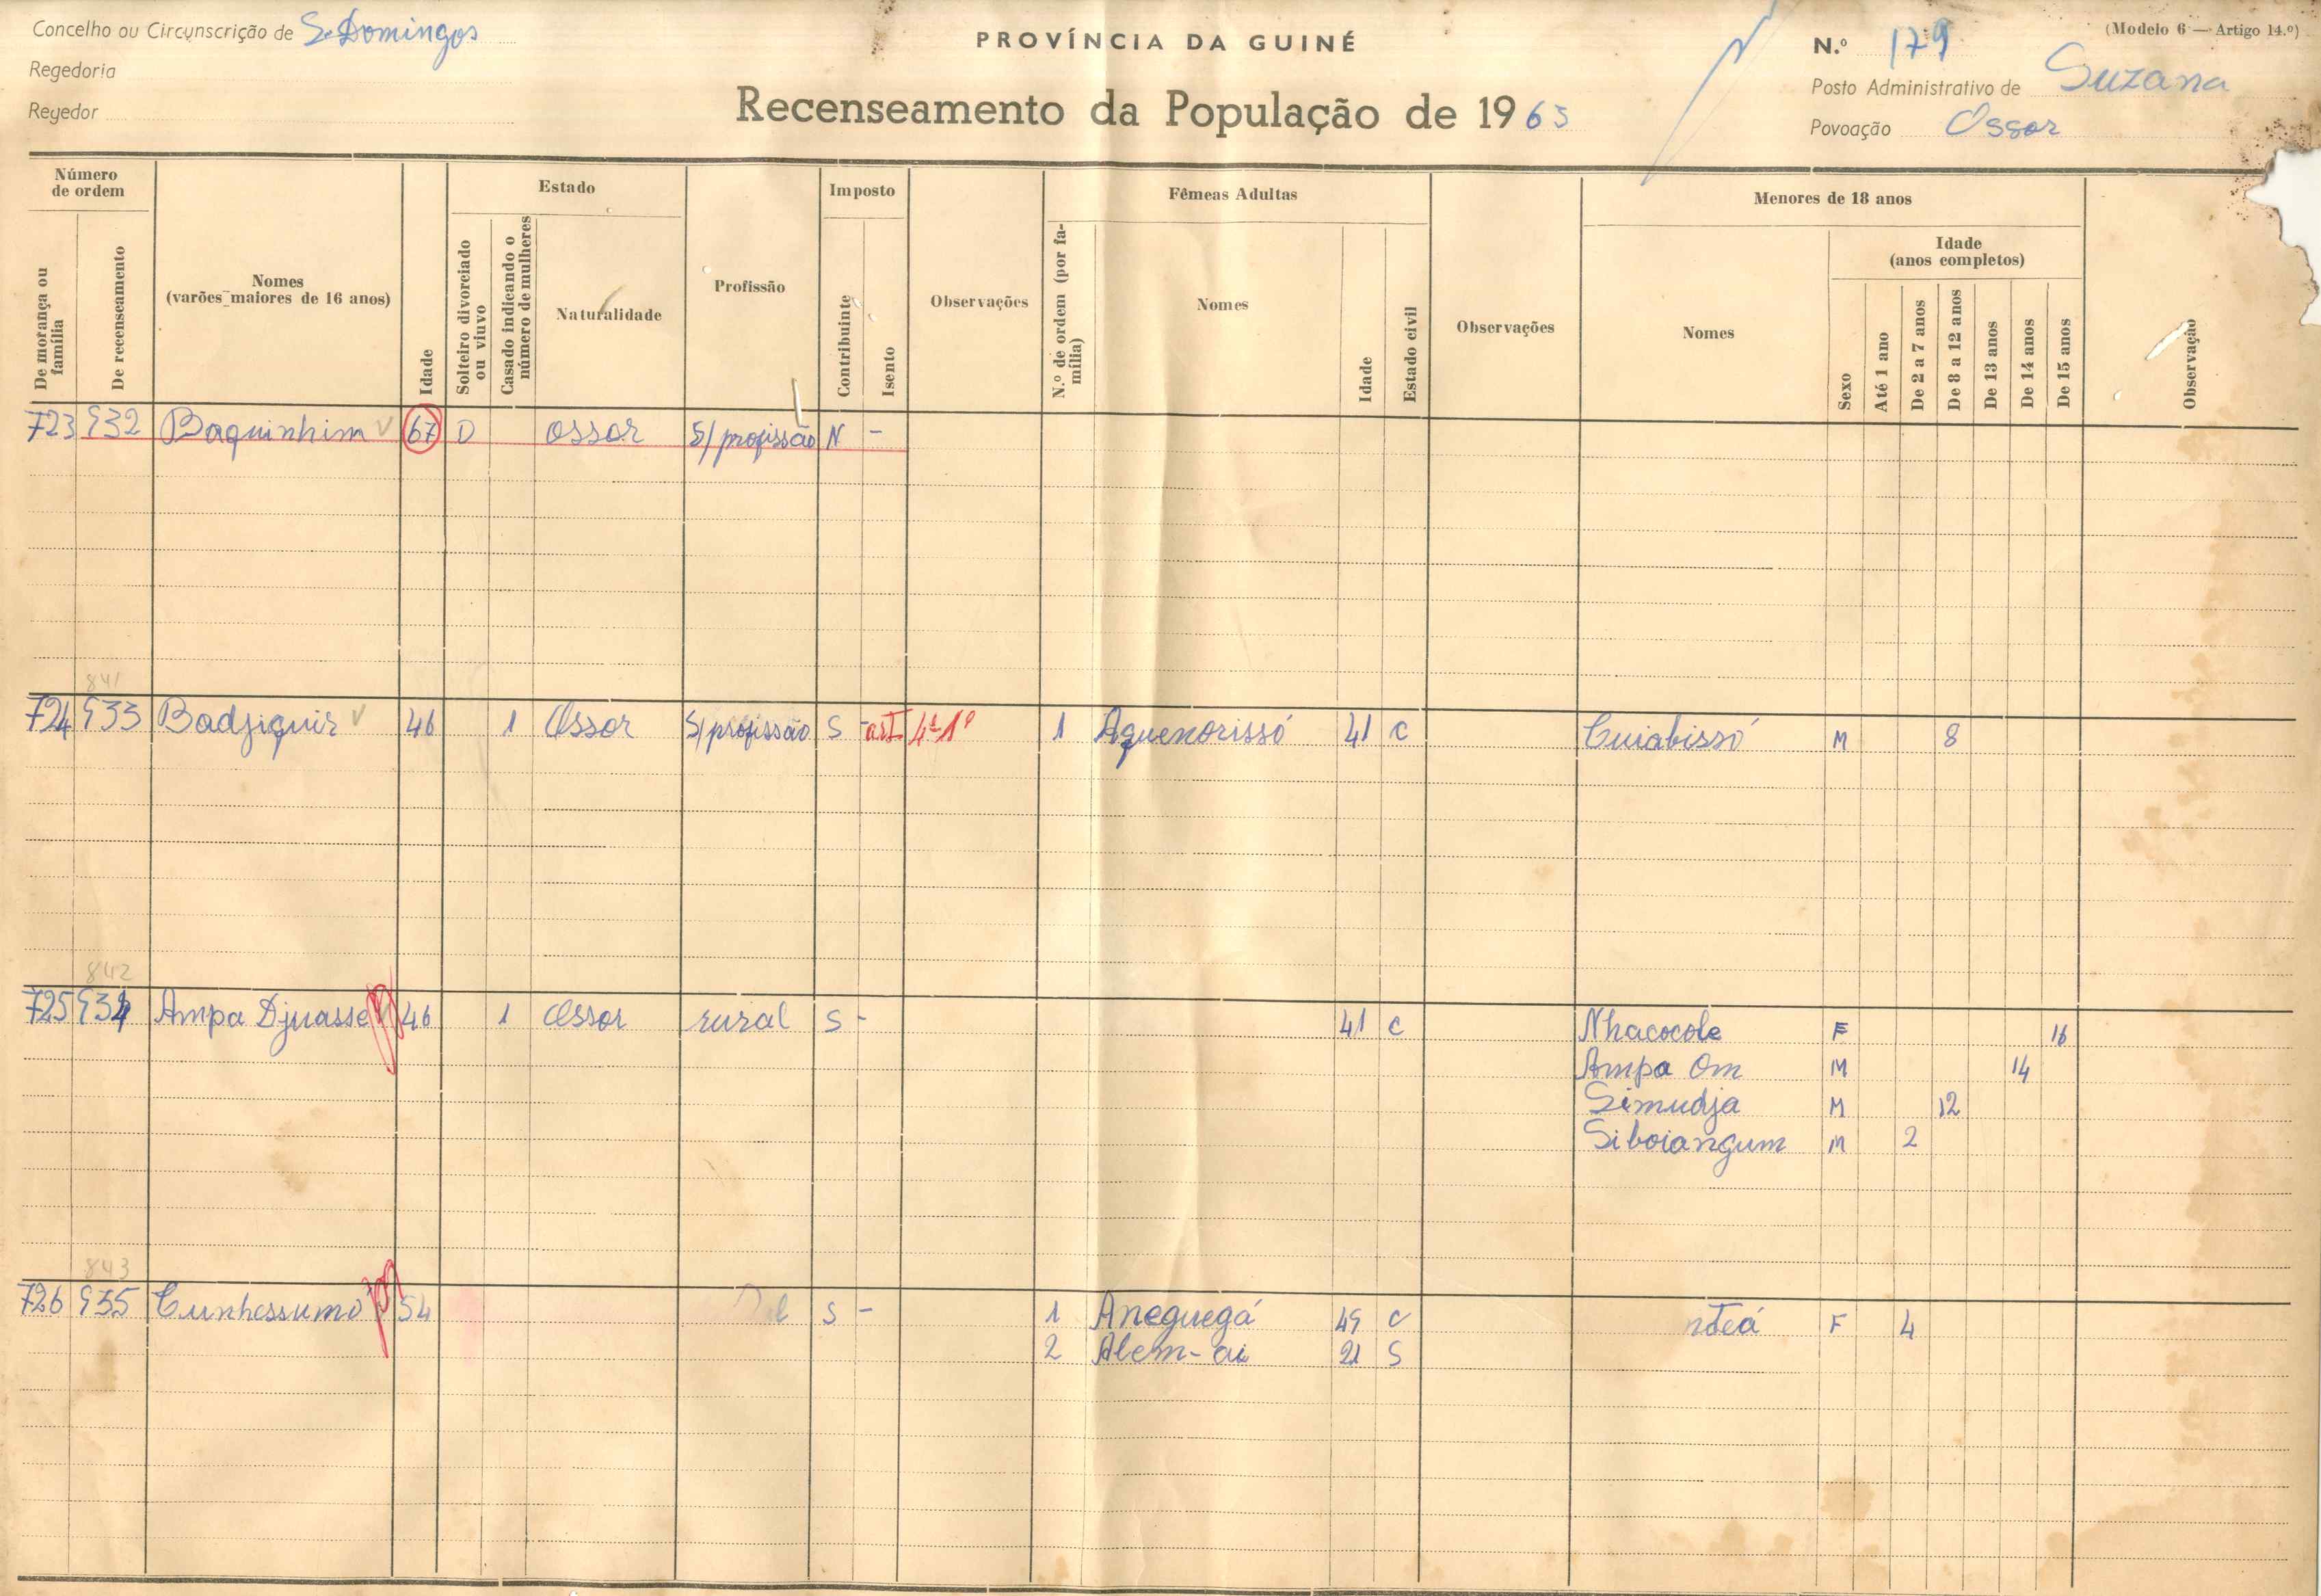 Concelho ou Circunscrição de S. Domingos
Regedoria
Regedor
PROVÍNCIA DA GUINÉ
Recenseamento da População de 1963
(Modelo 6 — Artigo 14.º)
N.º 179
Posto Administrativo de Suzana
Povoação Ossor
Número de ordem
De morança ou família
De recenseamento
Nomes (varões maiores de 16 anos)
Idade
Estado
Solteiro divorciado ou viuvo
Casado indicando o número de mulheres
Naturalidade
Profissão
Imposto
Contribuinte
Isento
Observações
Fêmeas Adultas
N.º de ordem (por família)
Nomes
Idade
Estado civil
Observações
Menores de 18 anos
Nomes
Sexo
Idade (anos completos)
Até 1 ano
De 2 a 7 anos
De 8 a 12 anos
De 13 anos
De 14 anos
De 15 anos
Observação
723 932 Baquinhim 67 D Ossor S/ profissão N -
841
724 933 Badjiquir 46 1 Ossor S/ profissão S - 1 Aquenorissó 41 C Cuiabissó M 8
842
725 934 Ampa Djuasse 46 1 Ossor rural S - 41 C Nhacocole F 16
Ampa Om M 14
Simudja M 12
Siboiangum M 2
843
726 935 Cunhessumo 54 S - 1 Aneguegá 49 C F 4
2 Alem-ai 21 S